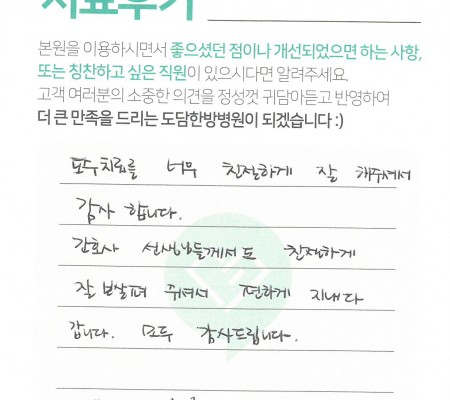 치료후기
본원을 이용하시면서 좋으셨던 점이나 개선되었으면 하는 사항,
또는 칭찬하고 싶은 직원이 있으시다면 알려주세요.
고객 여러분의 소중한 의견을 정성껏 귀담아듣고 반영하여
더 큰 만족을 드리는 도담한방병원이 되겠습니다 :)
도수치료를 너무 친절하게 잘 해주셔서
감사 합니다.
간호사 선생님들께서도 친절하게
잘 보살펴 줘셔서 편하게 지내다
갑니다. 모두 감사드립니다.